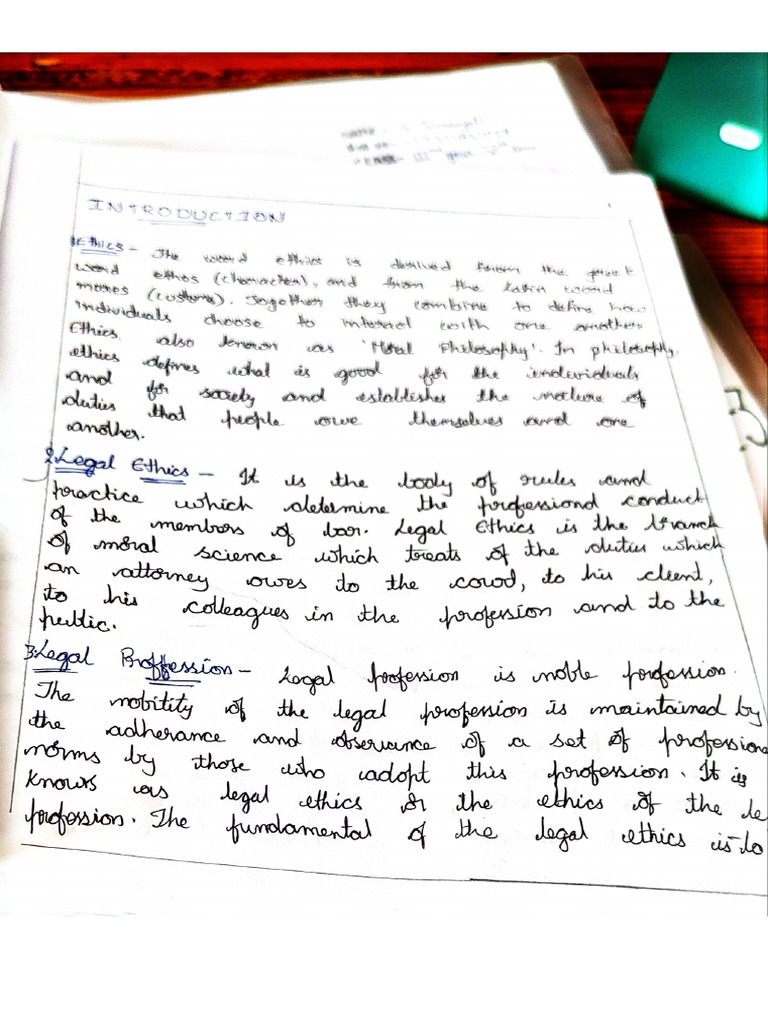 INTRODUCTION
1. Ethics - The word ethics is derived from the greek
word ethos (character), and from the latin word
mores (customs). Together they combine to define how
individuals choose to interact with one another.
Ethics also known as 'Moral Philosophy'. In philosophy,
ethics defines what is good for the individuals
and for society and establishes the nature of
duties that people owe themselves and one
another.
2. Legal Ethics - It is the body of rules and
practice which determine the professional conduct
of the members of bar. Legal Ethics is the branch
of moral science which treats of the duties which
an attorney owes to the court, to his client,
to his colleagues in the profession and to the
public.
3. Legal Proffession - Legal profession is noble profession.
The nobitity of the legal profession is maintained by
the adherance and observance of a set of professiona
norms by those who adopt this profession. It is
knows as legal ethics or the ethics of the le
profession. The fundamental of the legal ethics is to